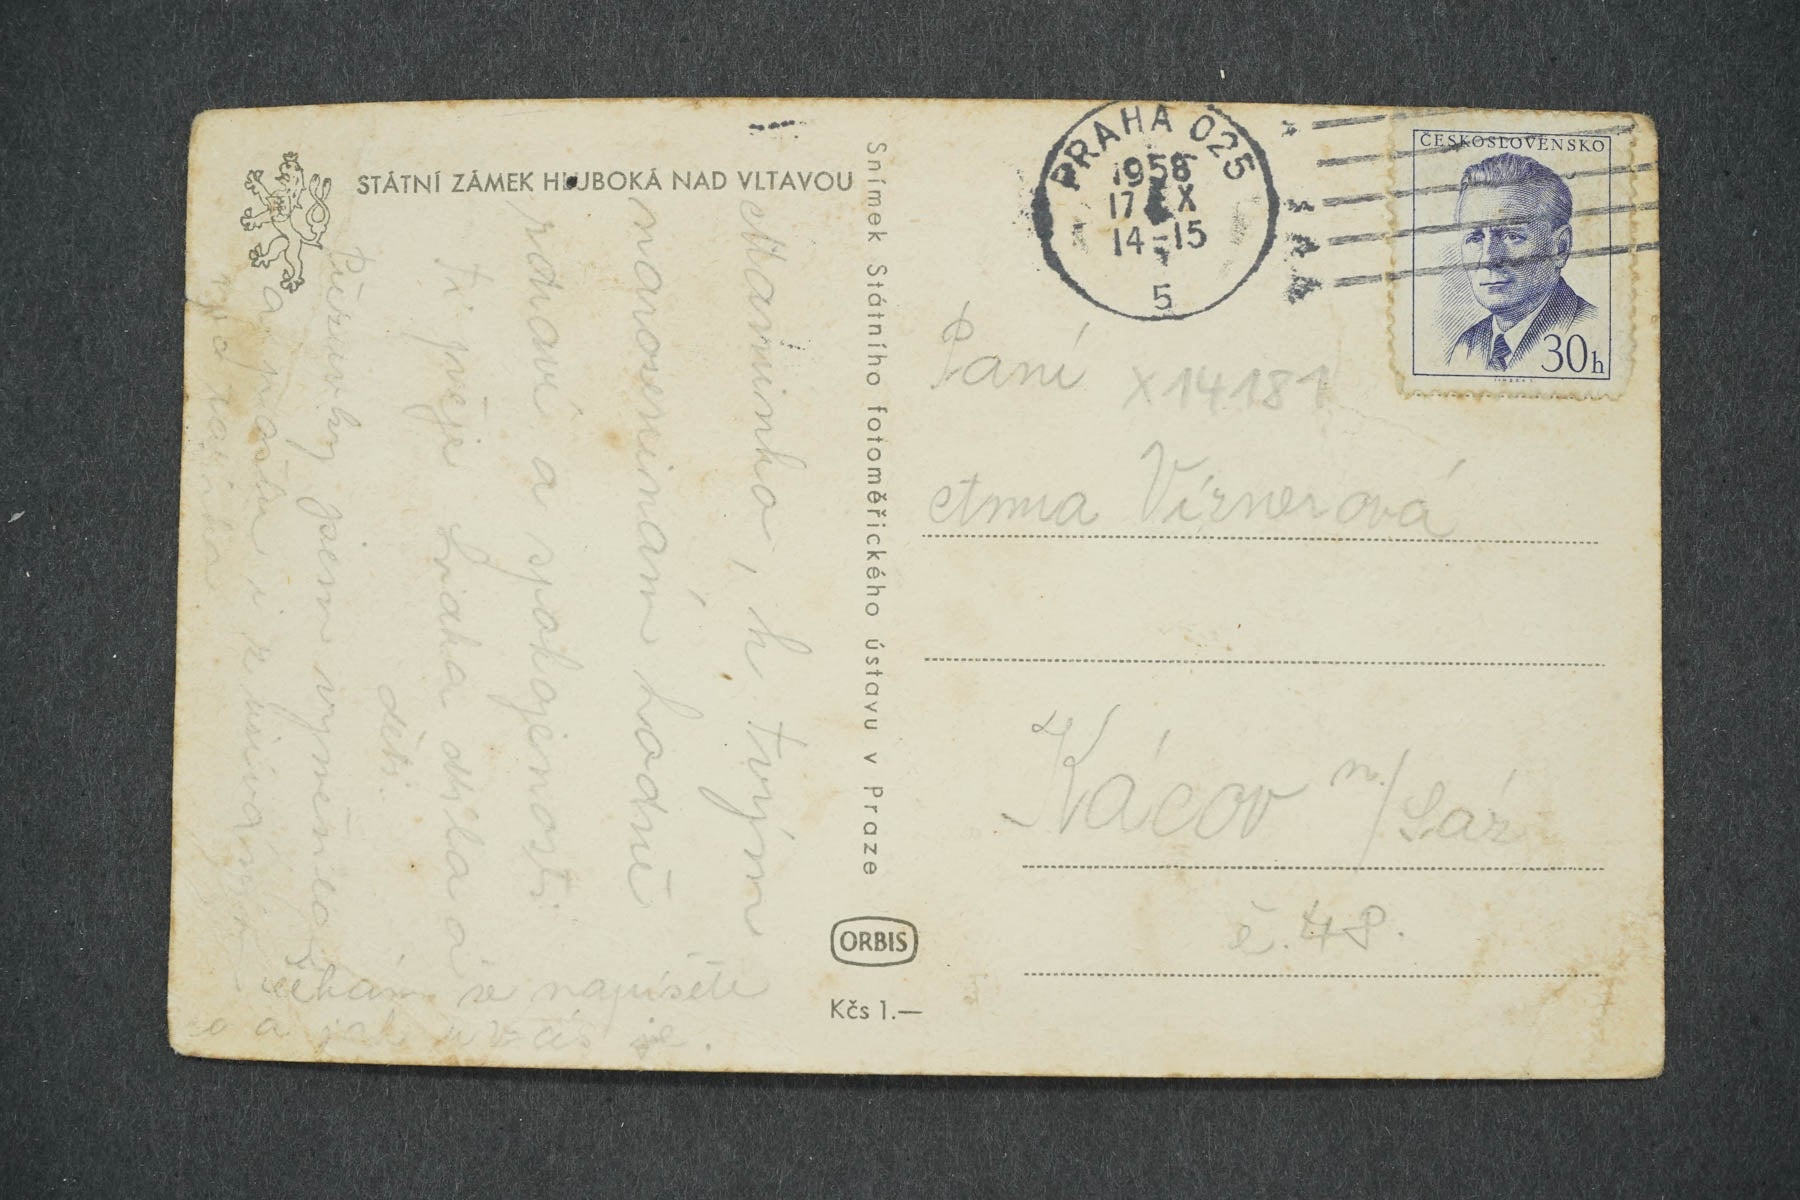 STÁTNÍ ZÁMEK HLUBOKÁ NAD VLTAVOU
Maminko, k tvým
narozeninám hodně
zdraví a spokojenosti
ti přeje
děti.
jsem vyměnila
a prostu i z
čekám že napíšete
o a jak u vás je.
Snímek Státního fotoměřického ústavu v Praze
ORBIS
Kčs 1.—
PRAHA 025
1958
17 X
14-15
5
ČESKOSLOVENSKO
30h
Paní
X14181
Anna Vírnerová
Kácov n./Sáz
č. 48.